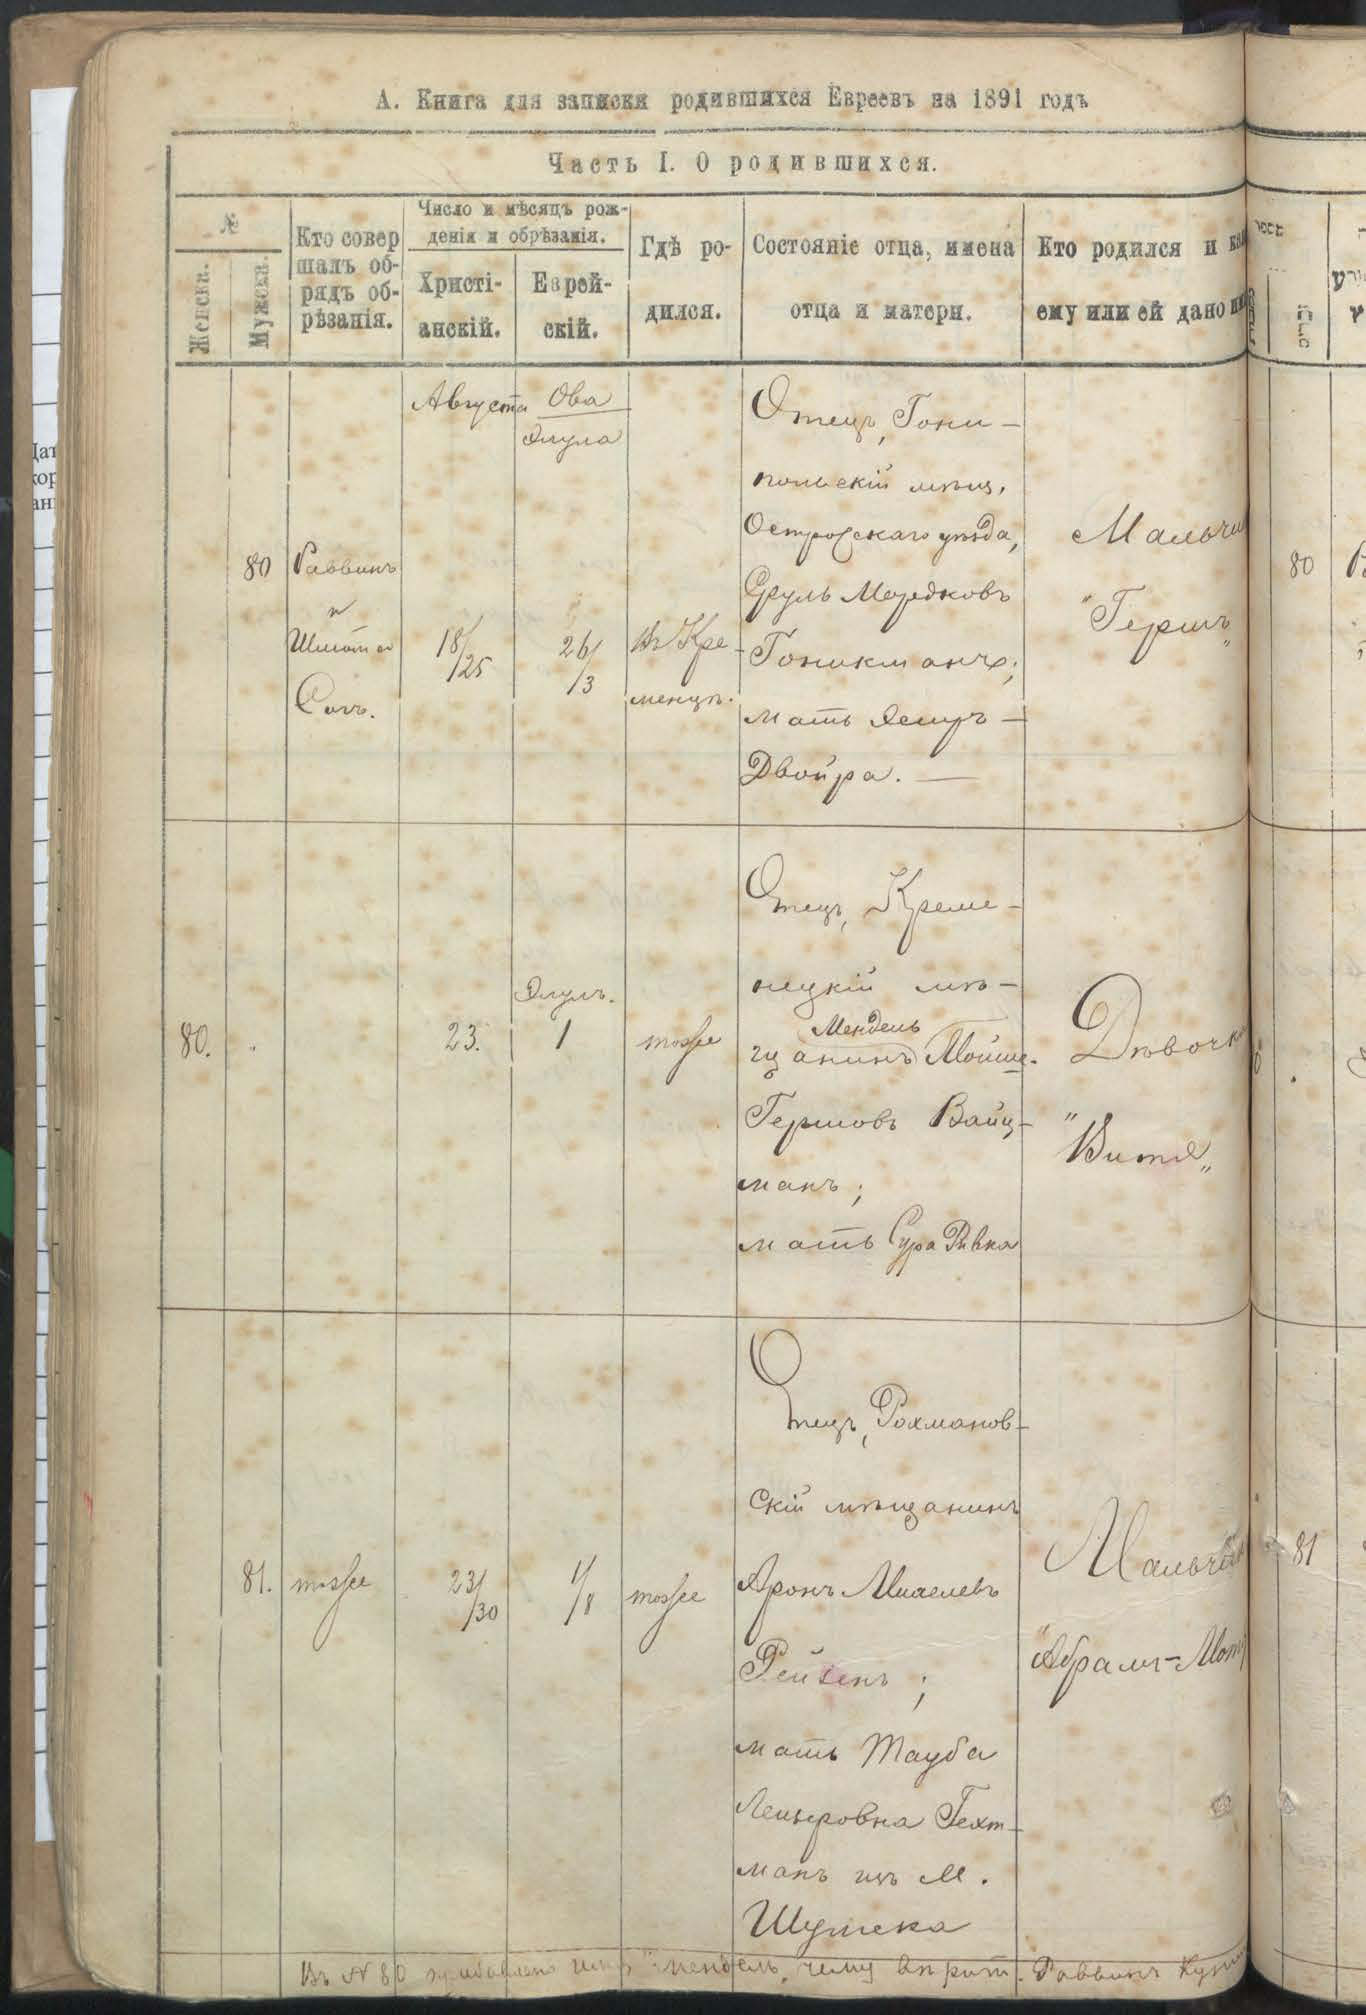 А. Книга для записки родившихся Евреевъ на 1891 годъ
Часть I. О родившихся.
№
Женска.
Мужска.
Кто совер
шалъ об-
рядъ об-
рѣзанія.
Число и мѣсяцъ рож-
денія и обрѣзанія.
Христі-
анскій.
Еврей-
скій.
Гдѣ ро-
дился.
Состояніе отца, имена
отца и матери.
Кто родился и как
ему или ей дано
80
Раввинъ
и
Августа
18/25
Ова
Элула
26/3
Въ Кре-
менцѣ.
Отецъ, Гони-
польскій мѣщ.
Острожскаго уѣзда,
Сруль Мордковъ
мать
Двойра. —
Мальчи
"Гершъ„
80
80.
23.
Элулъ.
1
тоже
Отецъ, Креме-
нецкій мѣ-
Мендель
щанинъ Мойше-
Гершовъ Вайц-
манъ;
мать Сура Ривка
Дѣвочка
"Витя„
81.
тоже
23/30
1/8
тоже
Отецъ, Рохманов-
скій мѣщанинъ
Аронъ
Рейзенъ;
мать Тауба
Лейзеровна Гехт-
манъ изъ М.
Шумска
Мальчик
"Абрамъ-Мот
81
Въ № 80 прибавлено имя "Мендель„ Раввинъ